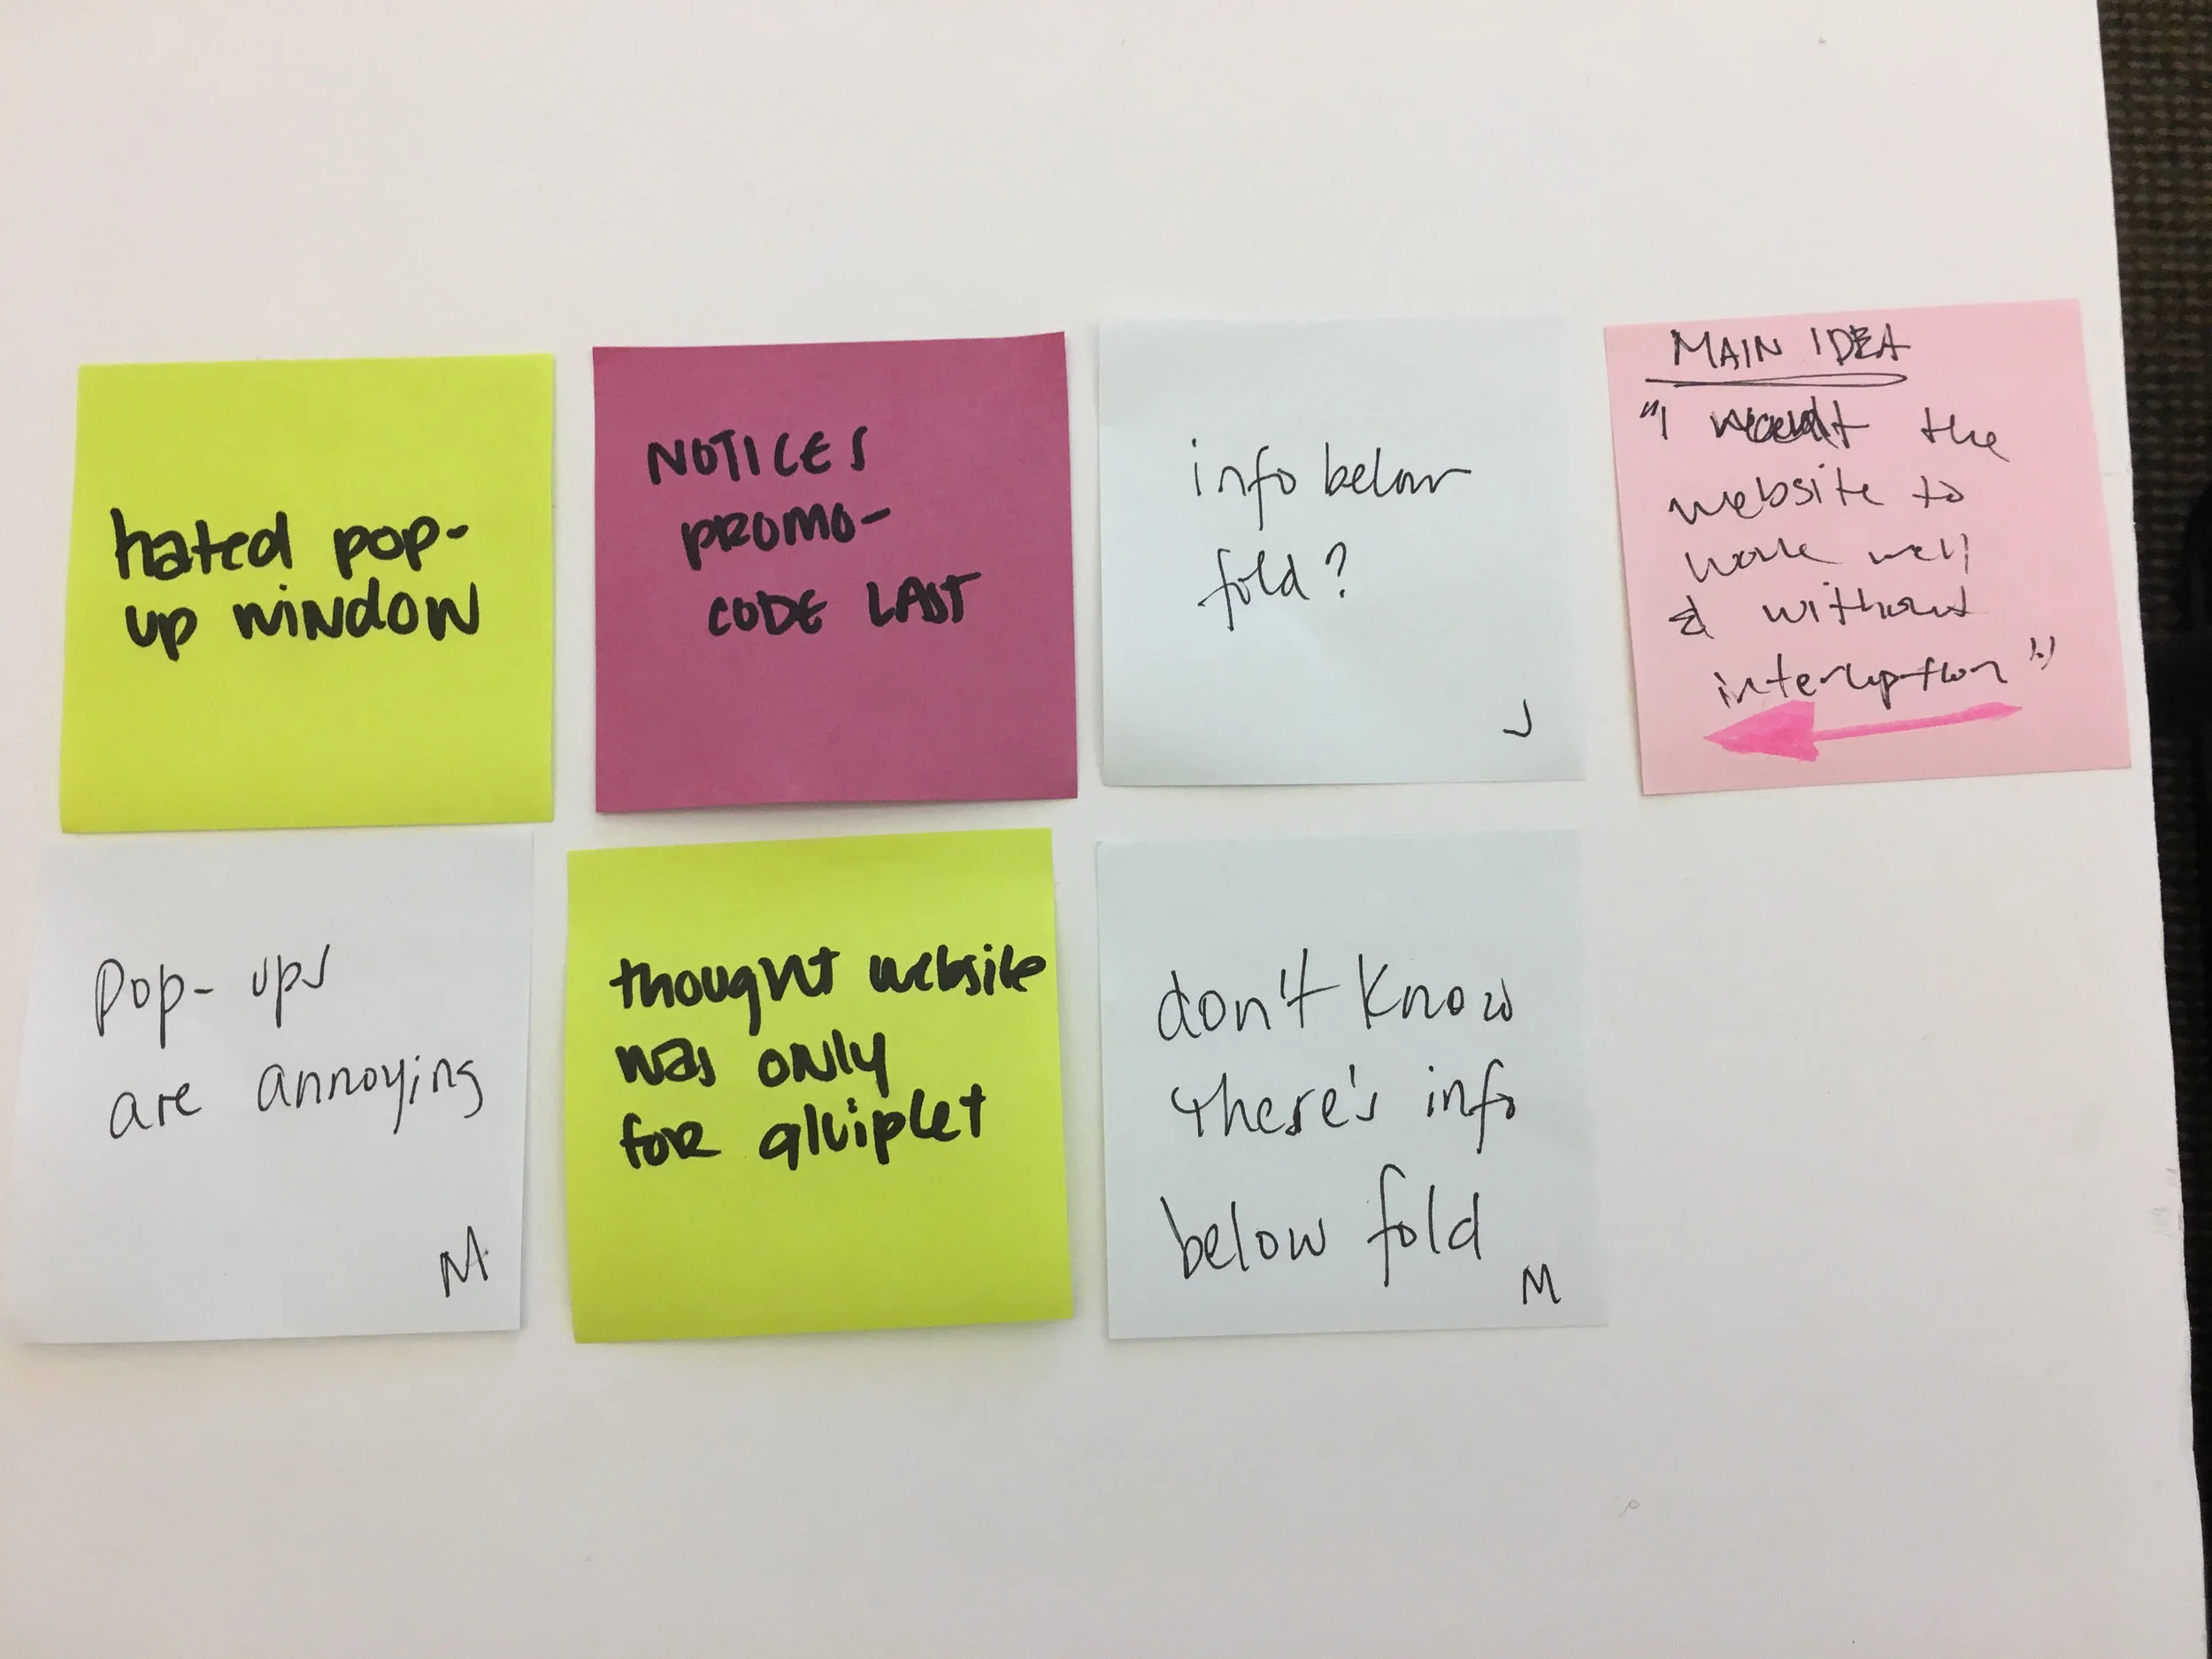 hated pop-
up window
NOTICES
PROMO-
CODE LAST
info below
fold?
J
MAIN IDEA
"I want the
website to
work well
& without
interruption"
Pop-ups
are annoying
M
thought website
was only
for qluiplet
don't know
there's info
below fold
M